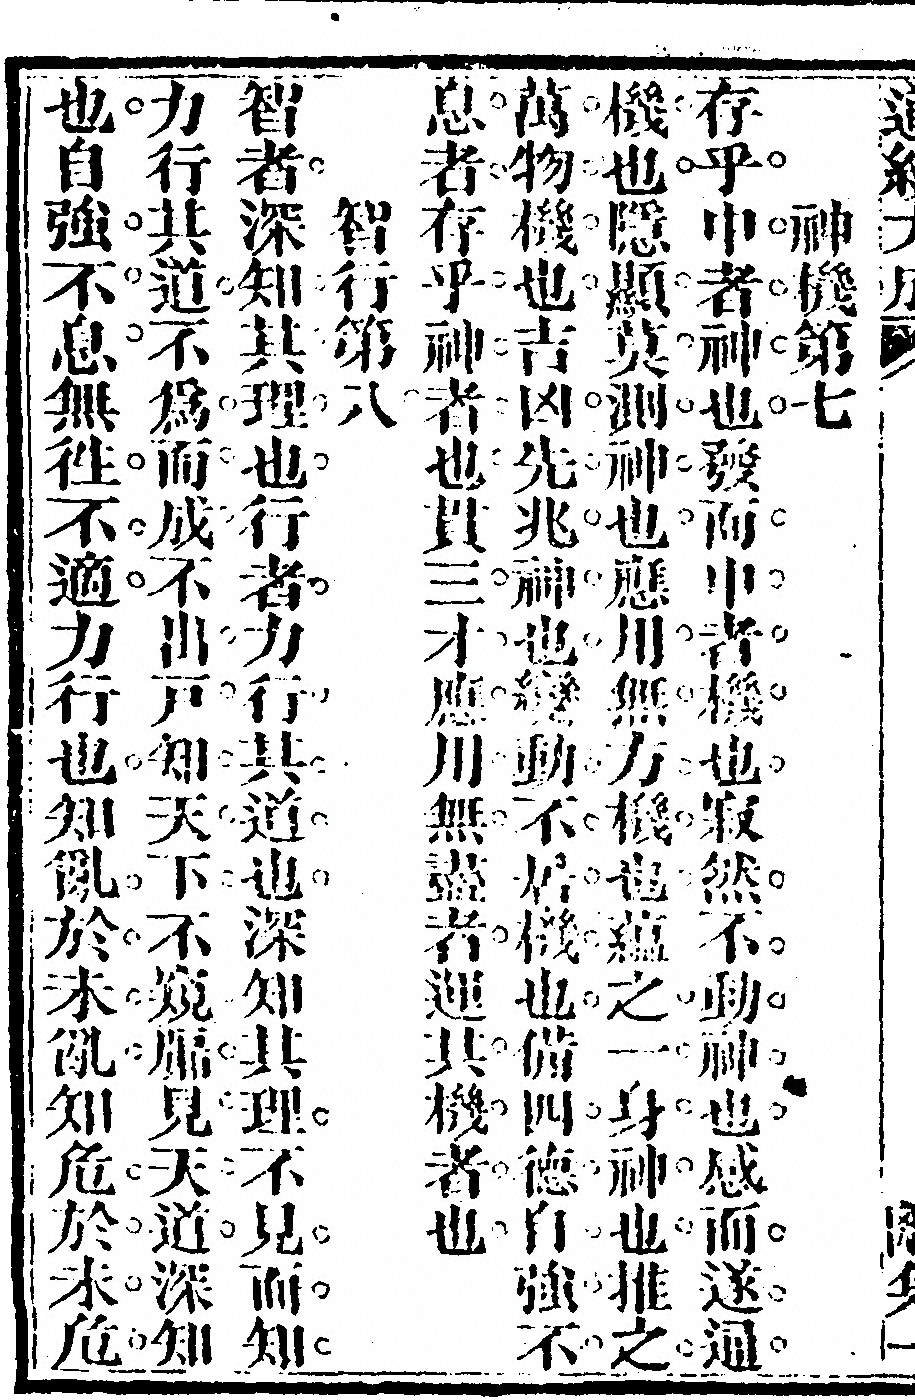 神機第七
存乎中者神也發而中者機也寂然不動神也感而遂通
機也隱顯莫測神也應用無方機也蘊之一身神也推之
萬物機也吉凶先兆神也變動不居機也備四德自強不
息者存乎神者也貫三才應用無盡者運其機者也
智行第八
智者深知其理也行者力行其道也深知其理不見而知
力行其道不為而成不出戶知天下不窺牖見天道深知
也自強不息無徃不適力行也知亂於未亂知危於未危